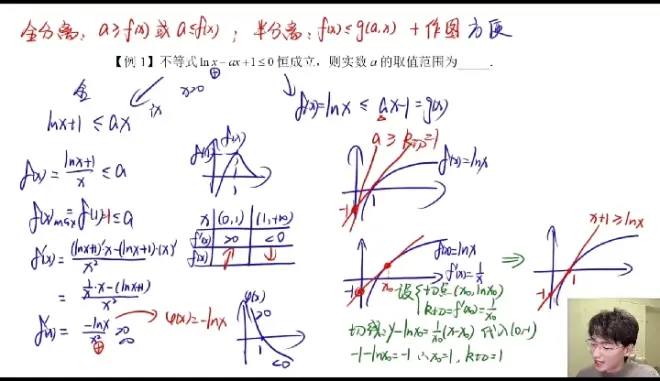 全分离: a≥f(x) 或 a≤f(x) ; 半分离: f(x)≤g(a,x) + 作图 方便
【例 1】不等式 ln x − ax + 1 ≤ 0 恒成立，则实数 a 的取值范围为_____.
全
x>0 ⊕
lnx+1 ≤ ax
÷x
f(x) = (lnx+1)/x ≤ a
f(x)max = f(1) = 1 ≤ a
f'(x) = ((lnx+1)'·x-(lnx+1)·(x)')/x²
= (1/x·x-(lnx+1))/x²
f'(x) = -lnx/x² >0 <0
⊕
φ(x) = -lnx
f(1)
f(x)
1
x (0,1) (1,+∞)
f'(x) >0 <0
f(x) ↑ ↓
φ(x)
>0
1
<0
f(x)=lnx ≤ ax-1=g(x)
a ≥ k切=1
f(x)=lnx
1
-1
f(x)=lnx
f'(x)=1/x
x₀
-1
设 { 切点(x₀,lnx₀)
k切=f'(x₀)=1/x₀
切线: y-lnx₀=1/x₀(x-x₀) 代入(0,-1)
-1-lnx₀=-1 ∴x₀=1, k切=1
⇒
x+1≥lnx
1
-1